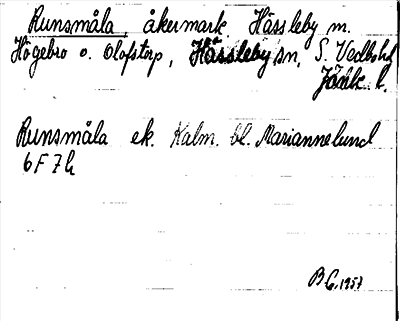 Runsmåla, åkermark Hässleby m.
Högebro o. Olofstorp, Hässleby sn, S. Vedbo hd
Jönk. l.
Runsmåla ek. Kalm. bl. Mariannelund
6 F 7 h
BG. 1957